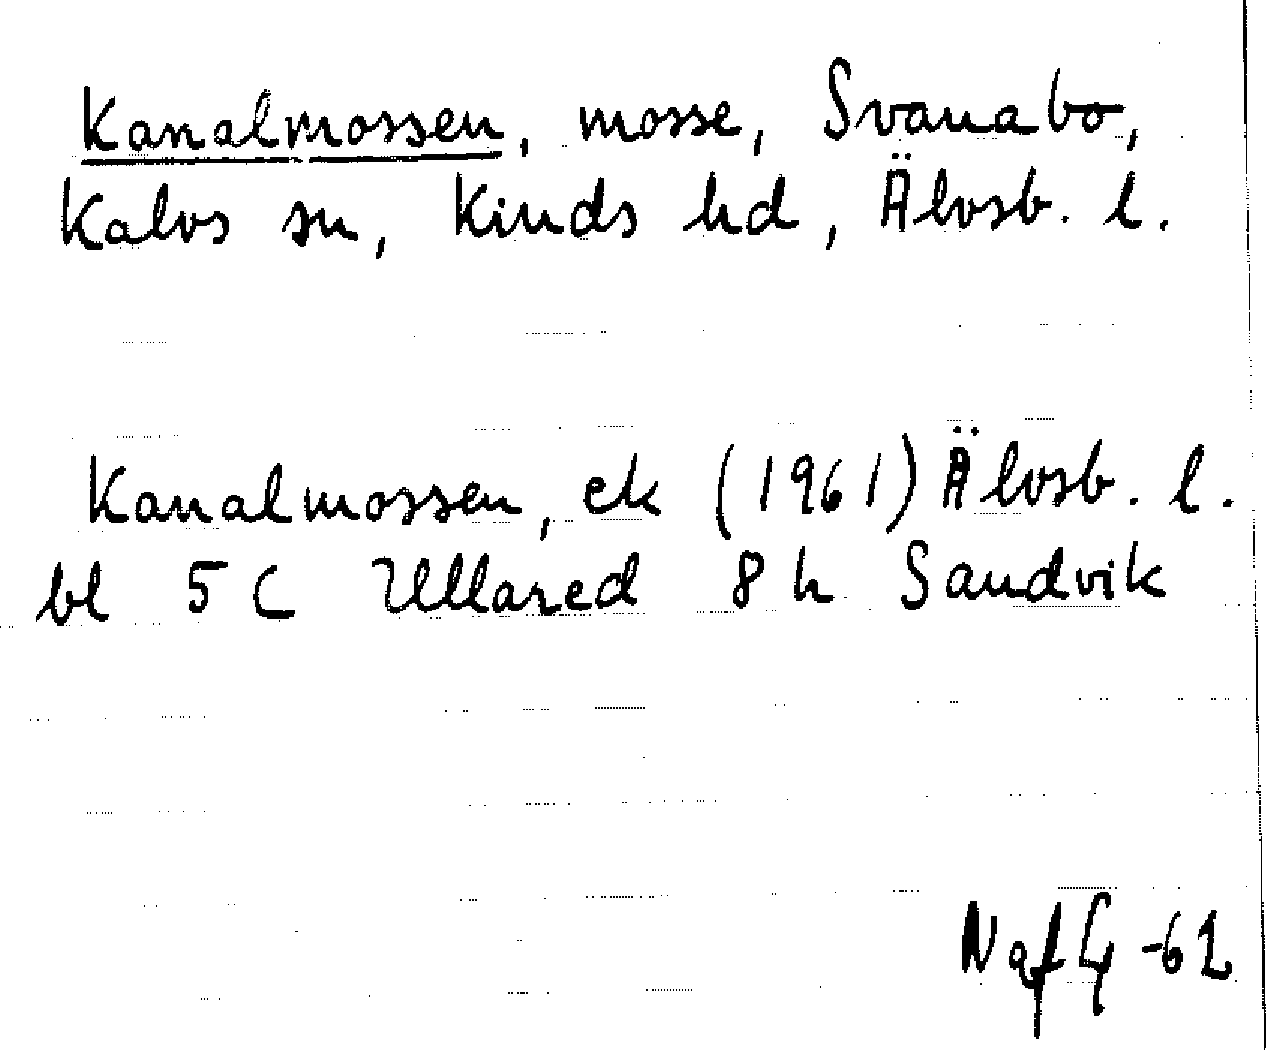 Kanalmossen, mosse, Svanabo,
Kalvs sn, Kinds hd, Älvsb. l.
Kanalmossen, ek (1961) Älvsb. l.
bl 5 C Ullared 8 h Sandvik
-62